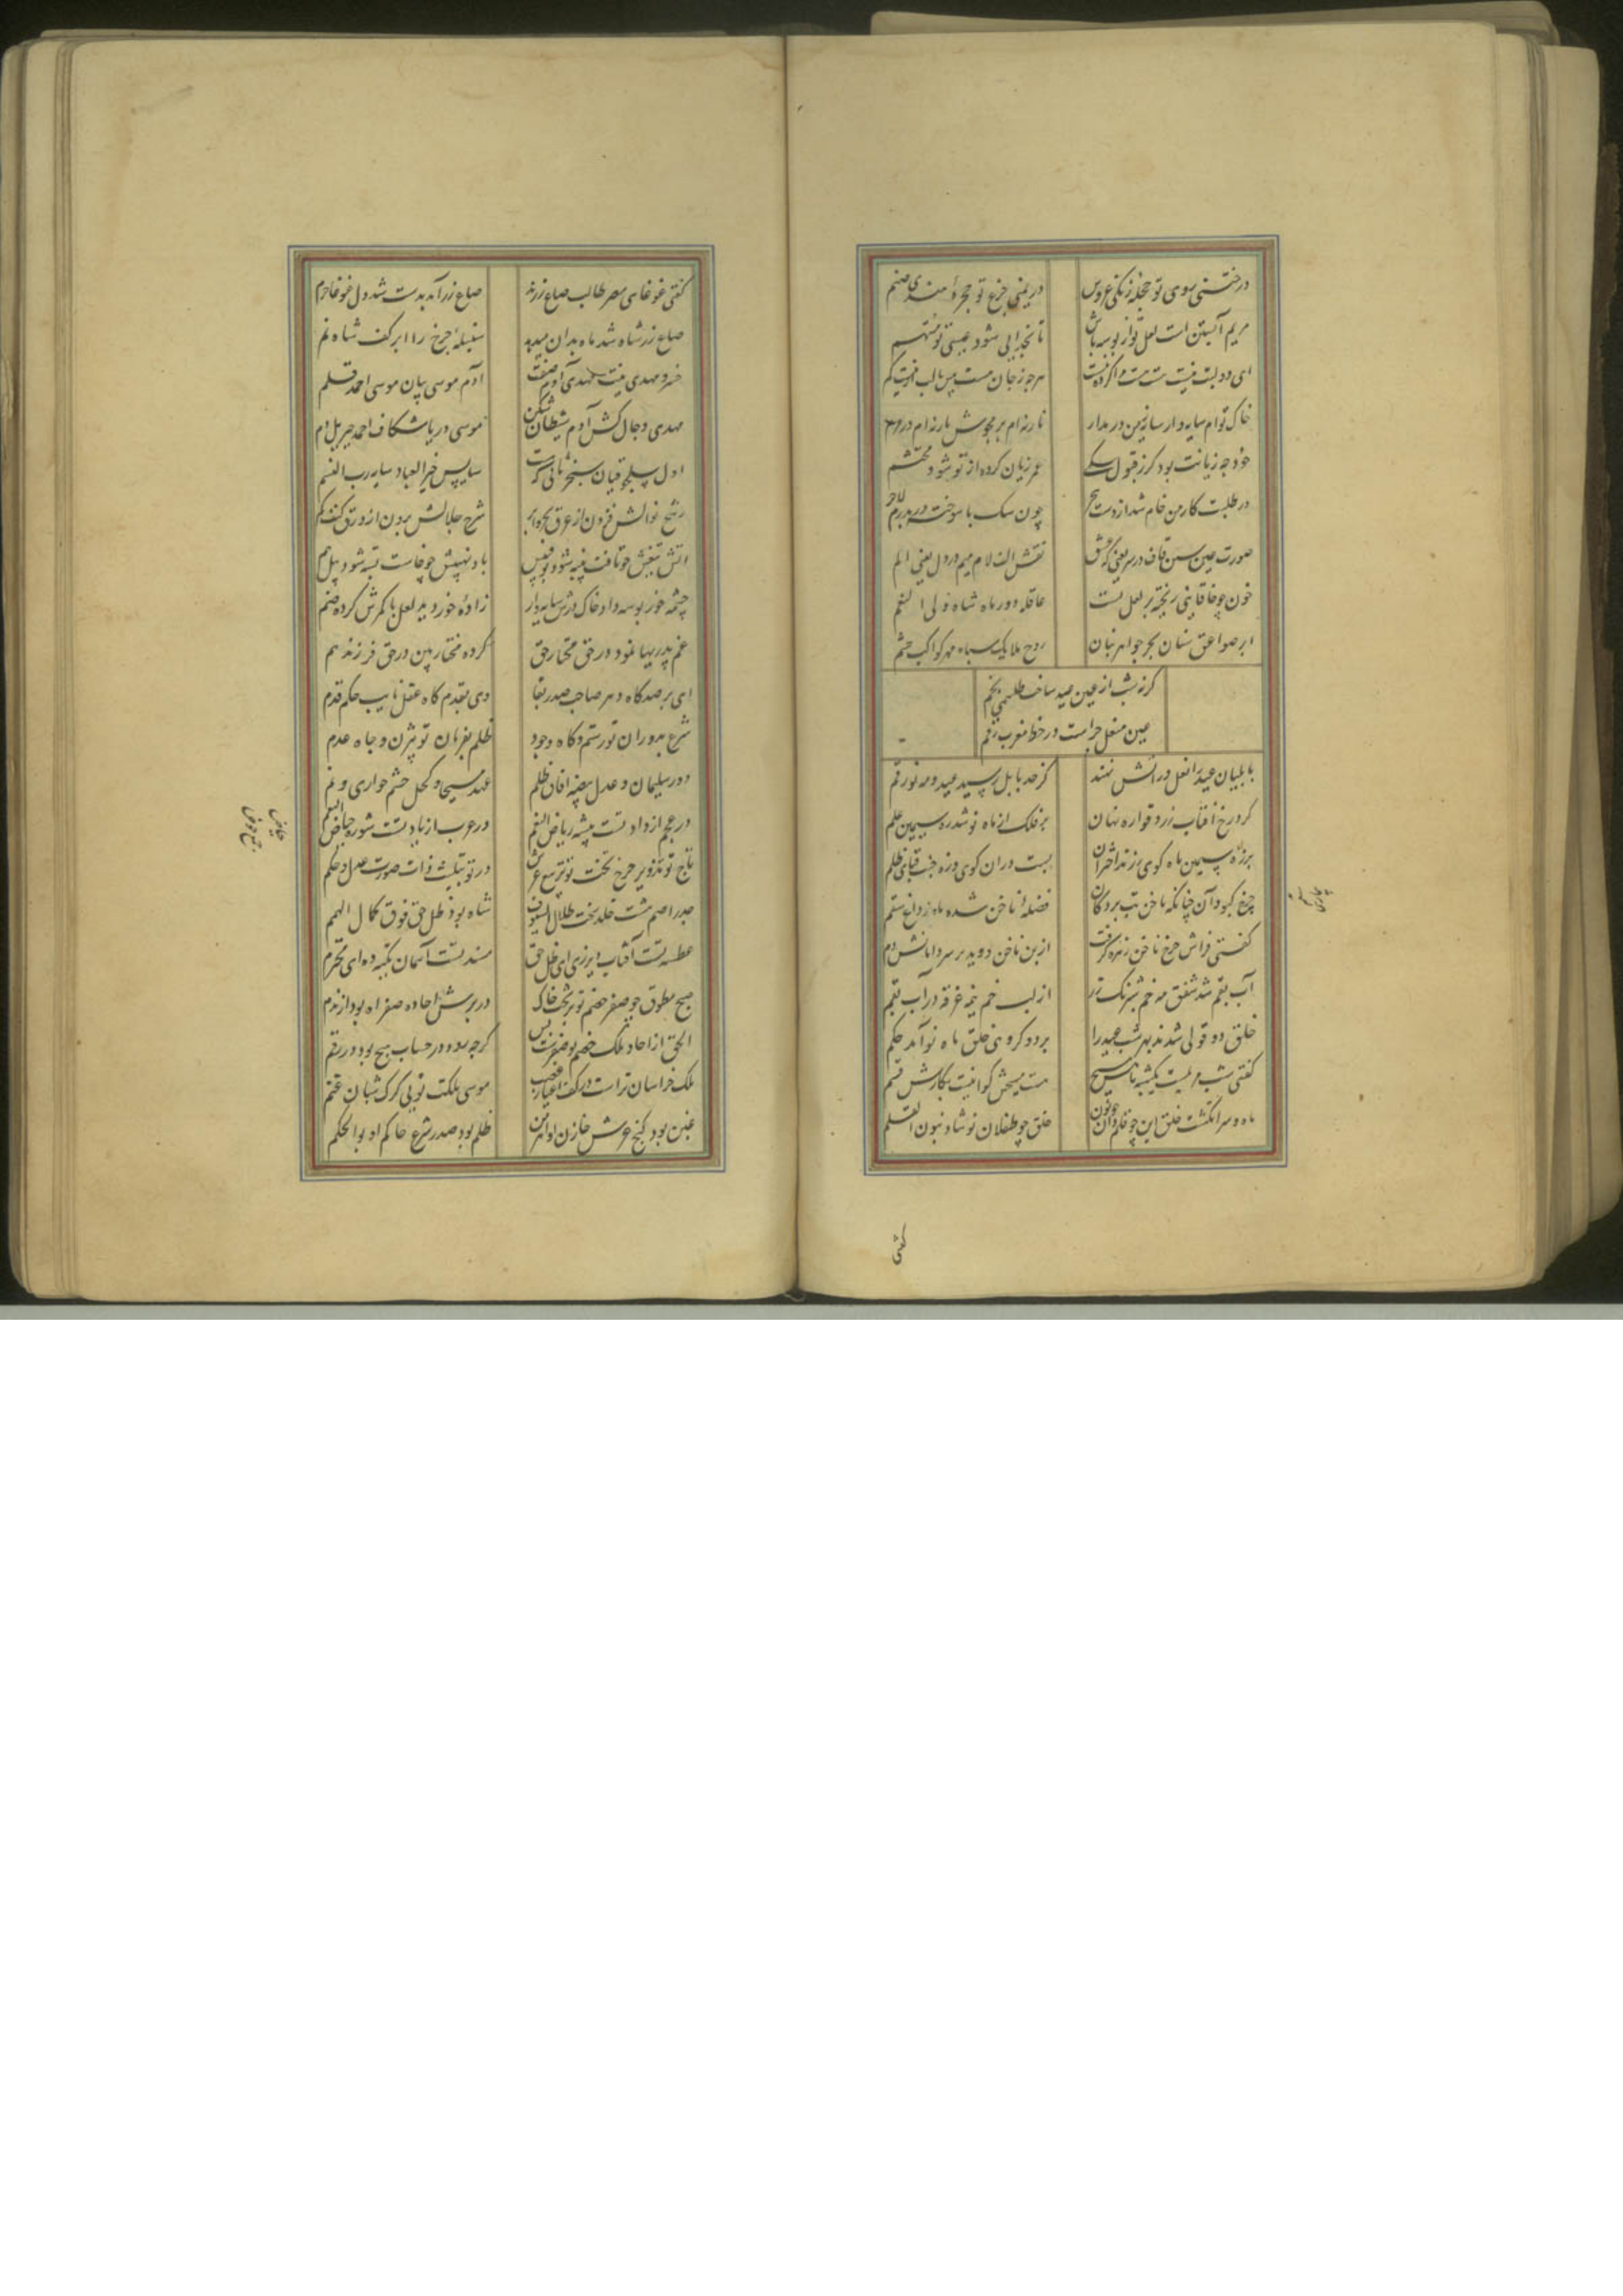 در ختنی روی تو حجله زنگی عروس
در یمنی جزع تو حجرهٔ هندی صنم
مریم آبستن است لعل تو از بوسه باش
تا بخدایی شود عیسی تو متهم
ای دو لبت نیست هست هست مرا کرده نیست
هرچه ز جان هست بیش با لب نیست کم
خاک توام سایه وار سایه زمن در مدار
خود چه زیانت بود گر ز قبول سگی
عمر زیان کرده از تو شود محتشم
در طلبت کار من خام شد از دست هجر
چون سگ پا سوخته دربدرم لاجرم
صورت عین شین قاف در سر یعنی که عشق
نقش الف لام میم در دل یعنی الم
خون چو خاقانیی ریخته بر لعل تست
عاقله دور ماه شاه ولی النعم
ابر صواعق سنان بحر جواهر بنان
روح ملایک سپاه مهر کواکب حشم
کز نه شب از عین عید ساخت طلسمی بخم
عین منعل چراست در خط مغرب رقم
بابلیان عید را نعل در آتش نهند
کز حد بابل رسید عید و مه نو رقم
کرد رخ آفتاب زرد قواره نهان
بر فلک از ماه نو شد زه سیمین علم
بر زه سیمین ماه گوی زر زند اختران
بست در آن گوی و زه جیب قبای ظلم
چرخ کبود آن چنانکه ناخن تب بردگان
فضلهٔ ناخن شده ماه ز داغ سقم
گفتی فراش چرخ ناخن زهره گرفت
از بن ناخن دوید بر سر دامانش دم
آب بقم شد شفق مه خم شبرنگ زر
از لب خم نیمه غرقه در آب بقم
خلق دو قولی شدند بهر شب عید را
بر دو گروهی خلق ماه نو آمد حکم
گفتی شب مریمیست یک شبه ماهش مسیح
هست مسیحش گوا نیست بکارش قسم
ماه و سر انگشت خلق این چو قلم وان چو نون
خلق چو طفلان نو شاد بنون القلم
گفتی
گفتی غوغای مصر طالب صاع زرند
صاع زر آمد بدست شد دل غوغا خرم
صاع زر شاه شد ماه بدان میدهد
سنبلهٔ چرخ را ابر کف شاه نم
خسرو مهدی نیت مهدی آدم صفت
آدم موسی بیان موسی احمد قلم
مهدی دجال کش آدم شیطان شکن
موسی دریا شکاف احمد جبریل دم
اول سلجوقیان سنجر ثانی کزوست
سایس خیر العباد سایه رب النسم
رشح نوالش فزون از عرق بحر و ابر
شرح جلالش برون از ورق کیف و کم
آتش تیغش چو تافت پنبه شود بوقبیس
باد نهیبش چو خاست پشه شود پیل هم
چشمه خور بوسه داد خاک درش سایه وار
زادهٔ خور دید لعل با کمرش کرده ضم
عم پدریها نمود در حق مختار حق
کرده مختار بین در حق فرزند عم
ای بر صد گاه دهر صاحب صدر بقا
وی بقدم گاه عقل نایب حکم قدم
شرع بدوران تو رستم و گاه وجود
ظلم بفرمان تو بیژن و چاه عدم
دور سلیمان و عدل بیضه آفاق ظلم
عهد مسیحا و کحل چشم حواری و نم
در عجم از داد تست بیشه ریاض النعم
در عرب از یاد تست شوره حیاض النعم
تاج تو تدویر چرخ تخت تو تربیع عرش
در تو بتثلیث ذات صورت عدل و حکم
صدر اصم هشت خلد تحت ظلال السیوف
شاه بود ظل حق فوق کمال الهمم
عطسه تست آفتاب ایزدی ای ظل حق
مسند تست آسمان تکیه ده ای محترم
صبح مطوق چو صفر خصم تو بر تخت خاک
الحق از آحاد ملک خصم تو صفریست بس
گرچه بود در حساب هیچ بود در رقم
ملک خراسان تراست در کف اغیار غصب
موسی ملکت تویی گرگ شبان غنم
غبن بود گنج عرش خازن او اهرمن
ظلم بود صدر شرع حاکم او بوالحکم
حیاض
جمع حوض